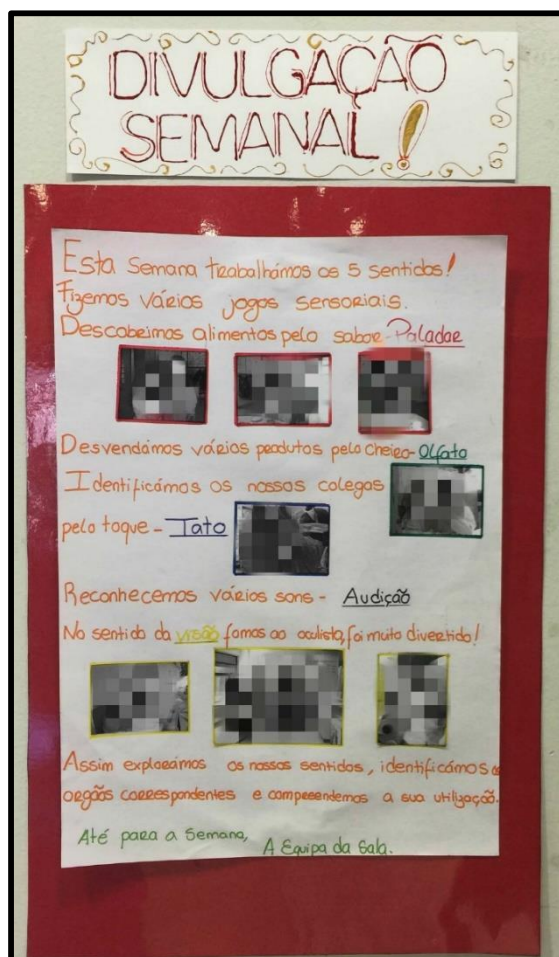 DIVULGAÇÃO
SEMANAL!
Esta Semana trabalhámos os 5 sentidos!
Fizemos vários jogos sensoriais.
Descobrimos alimentos pelo sabor-Paladar
Desvendámos vários produtos pelo cheiro-Olfato
Identificámos os nossos colegas
pelo toque - Tato
Reconhecemos vários sons - Audição
No sentido da visão fomos ao oculista, foi muito divertido!
Assim explorámos os nossos sentidos, identificámos os
orgãos correspondentes e compreendemos a sua utilização.
Até para a Semana,
A Equipa da Sala.